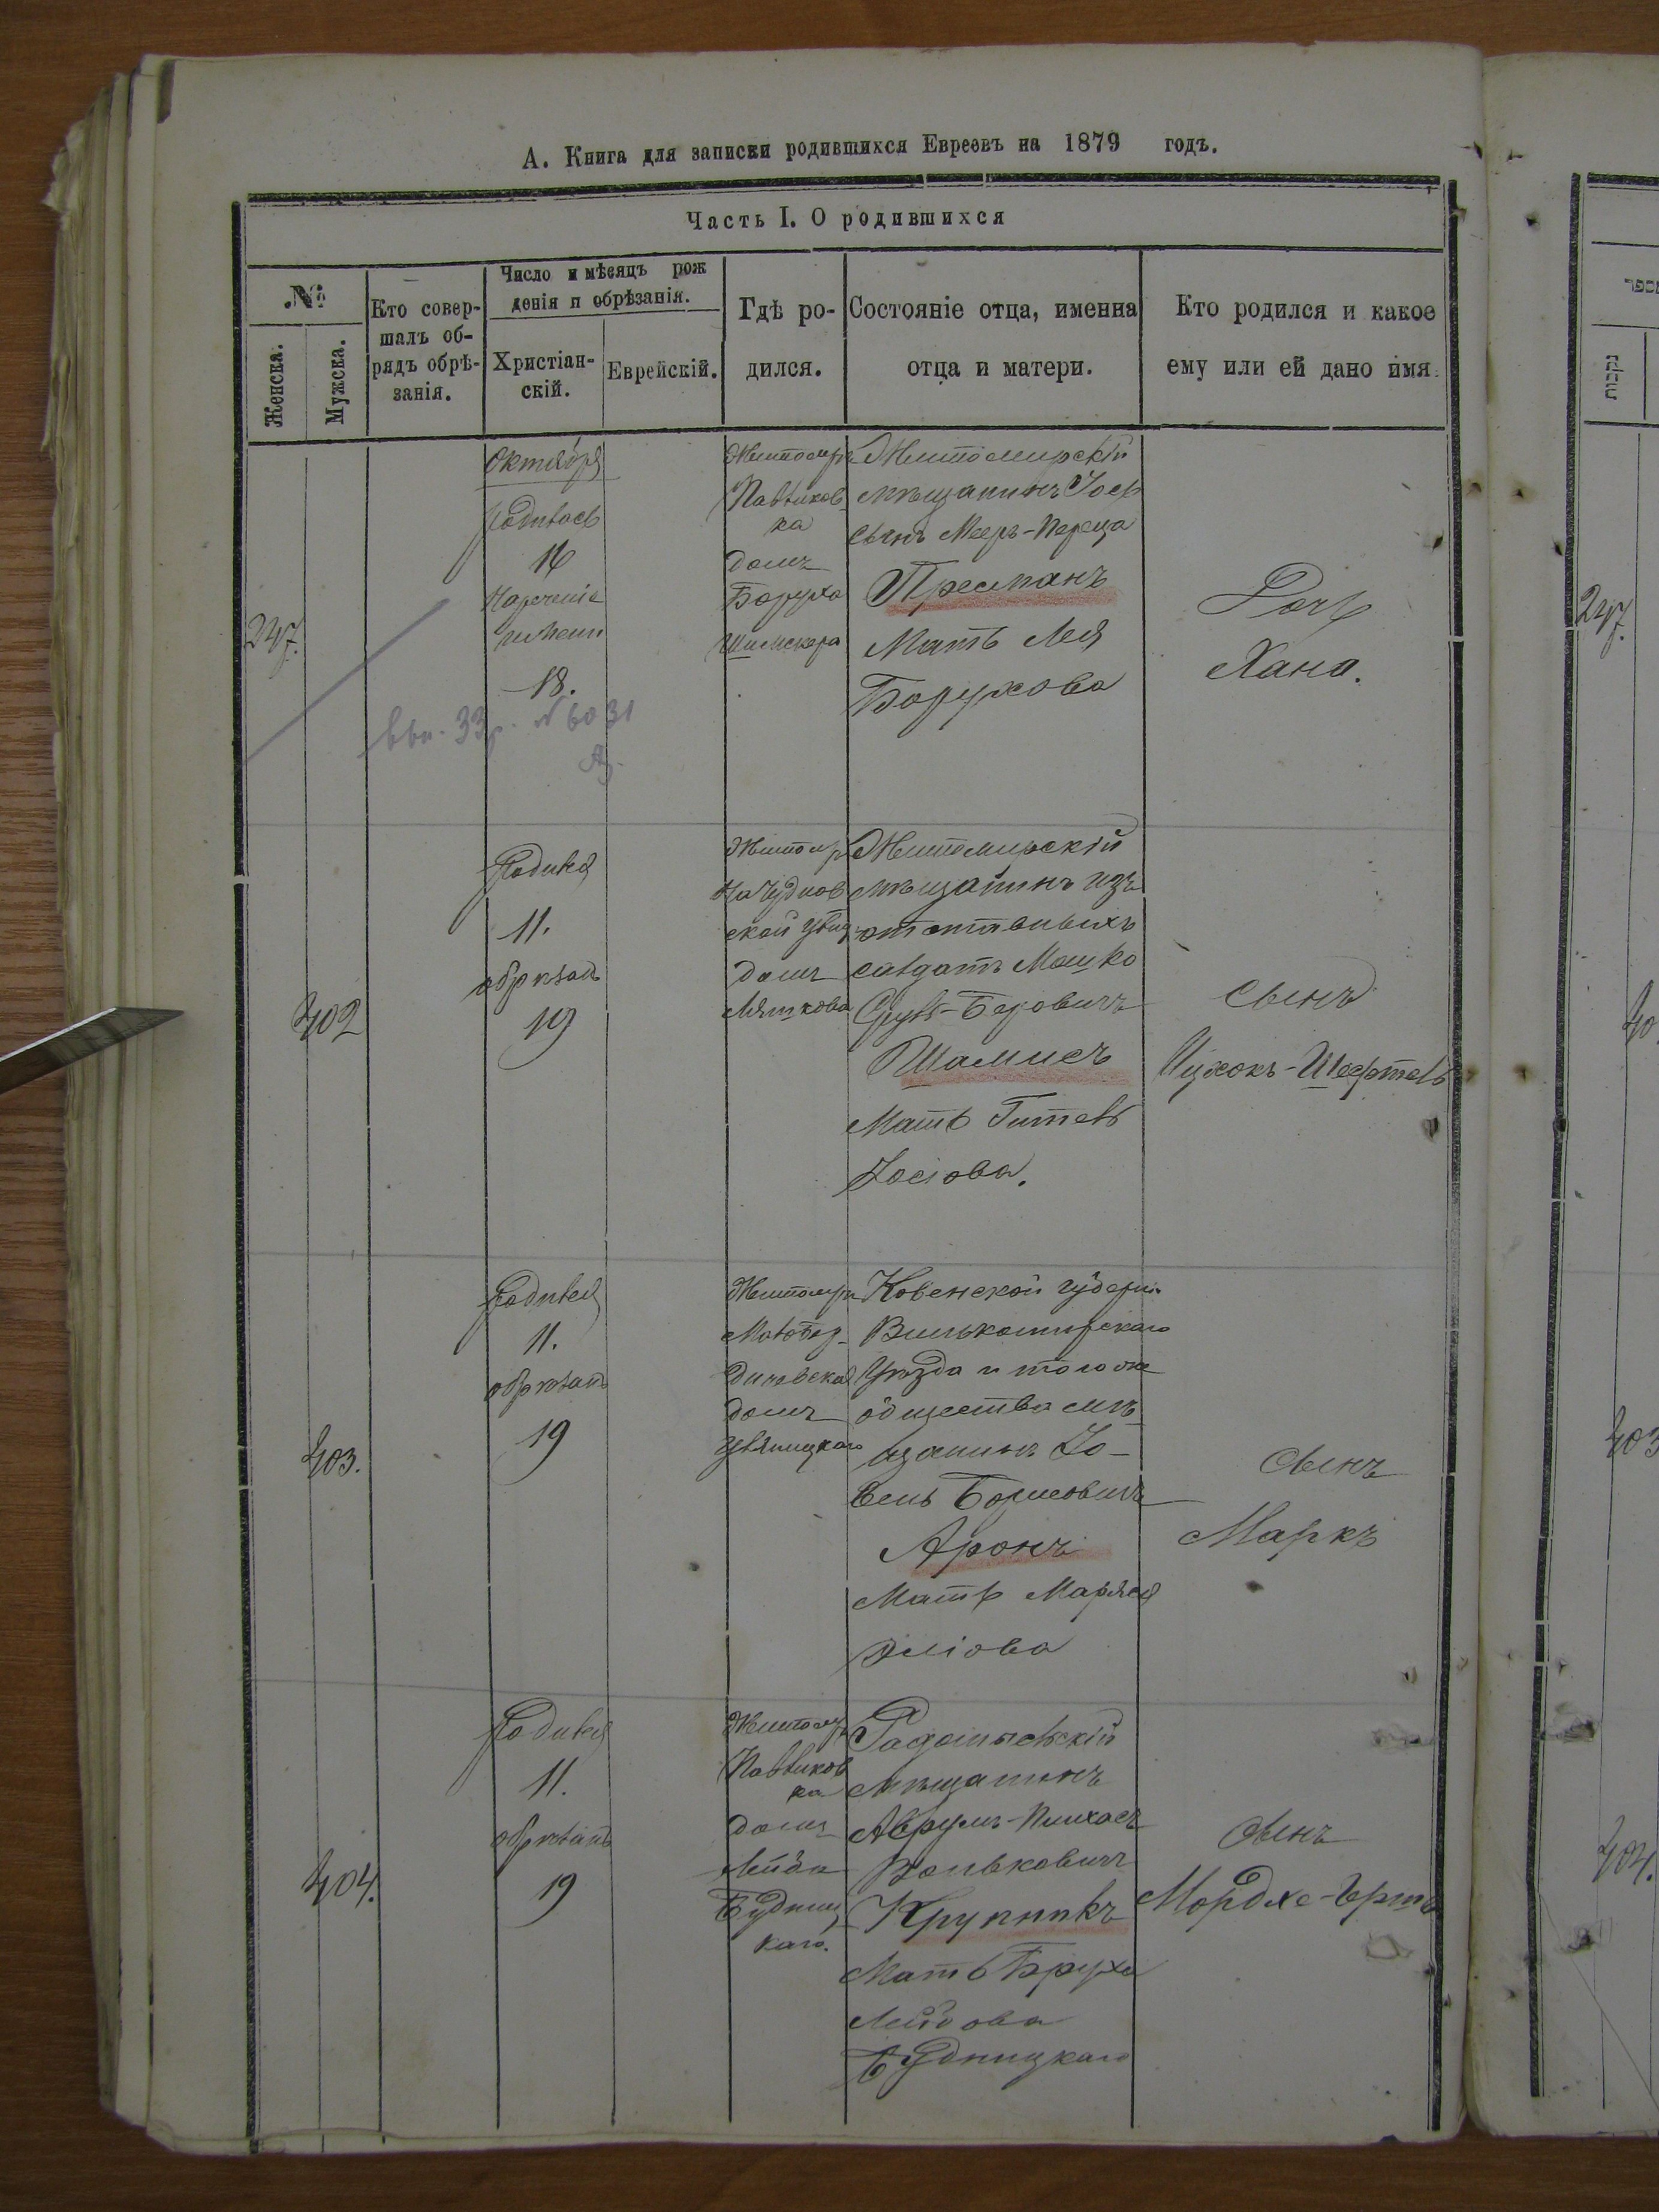 А. Книга для записки родившихся Евреевъ на 1879 годъ.
Часть I. О родившихся
№
Женска.
Мужска.
Кто совер-
шалъ об-
рядъ обрѣ-
занія.
Число и мѣсяцъ рож
денія и обрѣзанія.
Христіан-
скій.
Еврейскій.
Гдѣ ро-
дился.
Состояніе отца, именна
отца и матери.
Кто родился и какое
ему или ей дано имя.
247.
Октября
родилась
16
Нареченіе
имени
18.
№ 6031
Житомиръ
Павликов
ка
домъ
Боруха
Житомирскій
мѣщанинъ Іось
сынъ Мееръ-Переца
Пресманъ
Мать Лея
Борухова
Дочь
Хана.
402
Родился
11.
обрѣзанъ
19
Житомиръ
На Чуднов
ской улиц
домъ
Ляшкова
Житомирскій
мѣщанинъ изъ
отставныхъ
солдатъ Мошко
Сруль-Беровичъ
Шамисъ
Мать Гитель
Іосіова.
Сынъ
Ицхокъ-Шефтель
403.
Родился
11.
обрѣзанъ
19
Житомиръ
Малобер-
дичевская
домъ
Ковенской губерніи
Вилькомирскаго
Уѣзда и того же
общества мѣ
щанинъ Іо-
Борисовичъ
Аронъ
Мать Маряся
Эліова
Сынъ
Маркъ
404.
Родился
11.
обрѣзанъ
19
Житомиръ
Павликов
ка
домъ
Лейба
Будниц
каго.
Радомысльскій
мѣщанинъ
Аврумъ-Пинхасъ
Волько­вичъ
Крупникъ
Мать Бруха
Лейбова
Будницкаго
Сынъ
Мордхе-Гершъ
247.
403
404.
נקבות